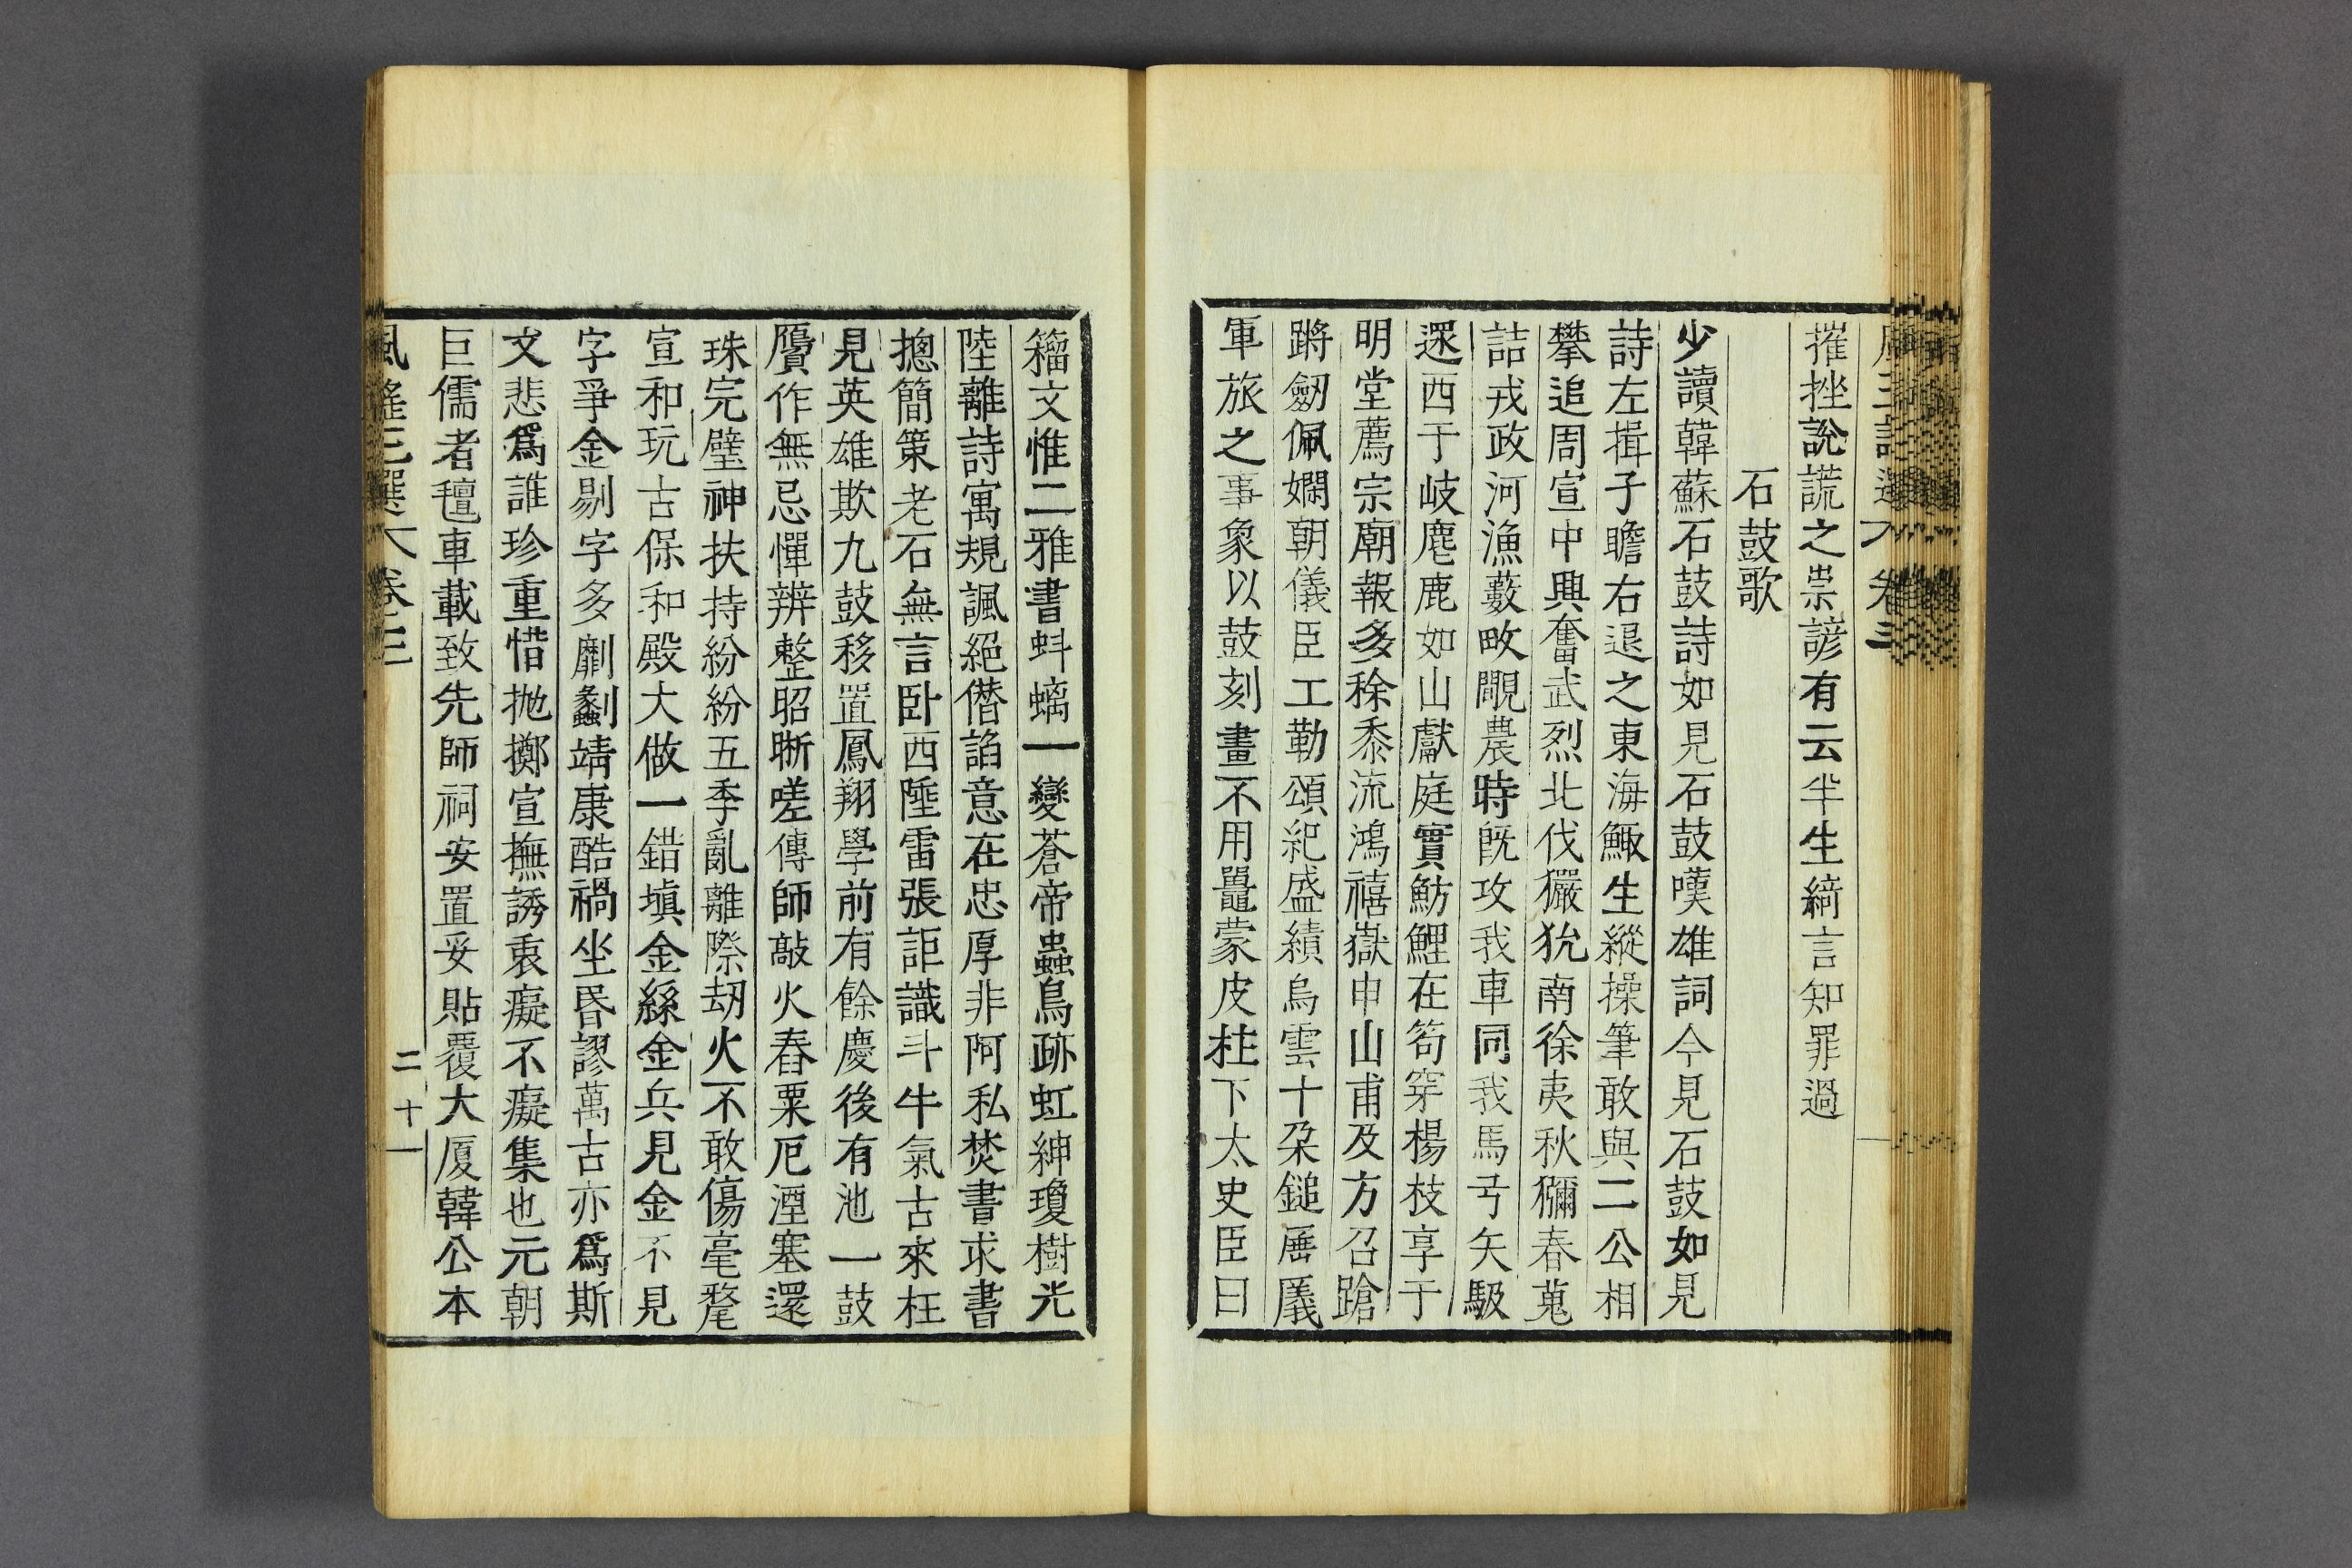 摧挫說謊之祟諺有云半生綺言知罪過
石鼓歌
少讀韓蘇石鼓詩如見石鼓嘆雄詞今見石鼓如見
詩左揖子瞻右退之東海鯫生縱操筆敢與二公相
攀追周宣中興奮武烈北伐玁狁南徐夷秋獮春蒐
詰戎政河漁藪畋覵農時旣攻我車同我馬弓矢駸
還西于岐麀鹿如山獻庭實魴鯉在笱穿楊枝享于
明堂薦宗廟報多稌黍流鴻禧嶽申山甫及方召蹌
蹡劒佩嫻朝儀臣工勒頌紀盛績烏雲十朶鎚厜㕒
軍旅之事象以鼓刻畫不用鼉蒙皮柱下太史臣曰
籀文惟二雅書蚪螭一變蒼帝蟲鳥跡虹紳瓊樹光
陸離詩寓規諷絕僭諂意在忠厚非阿私焚書求書
摠簡策老石無言卧西陲雷張詎識斗牛氣古來枉
見英雄欺九鼓移置鳳翔學前有餘慶後有池一鼓
贗作無忌憚辨整昭晣嗟傳師敲火舂粟厄湮塞還
珠完璧神扶持紛紛五季亂離際刧火不敢傷毫氂
宣和玩古保和殿大做一錯塡金絲金兵見金不見
字爭金剔字多劘劙靖康酷禍坐昬謬萬古亦爲斯
文悲爲誰珍重惜抛擲宣撫誘衷癡不癡集也元朝
巨儒者氊車載致先師祠安置妥貼覆大厦韓公本
卷三
二十一